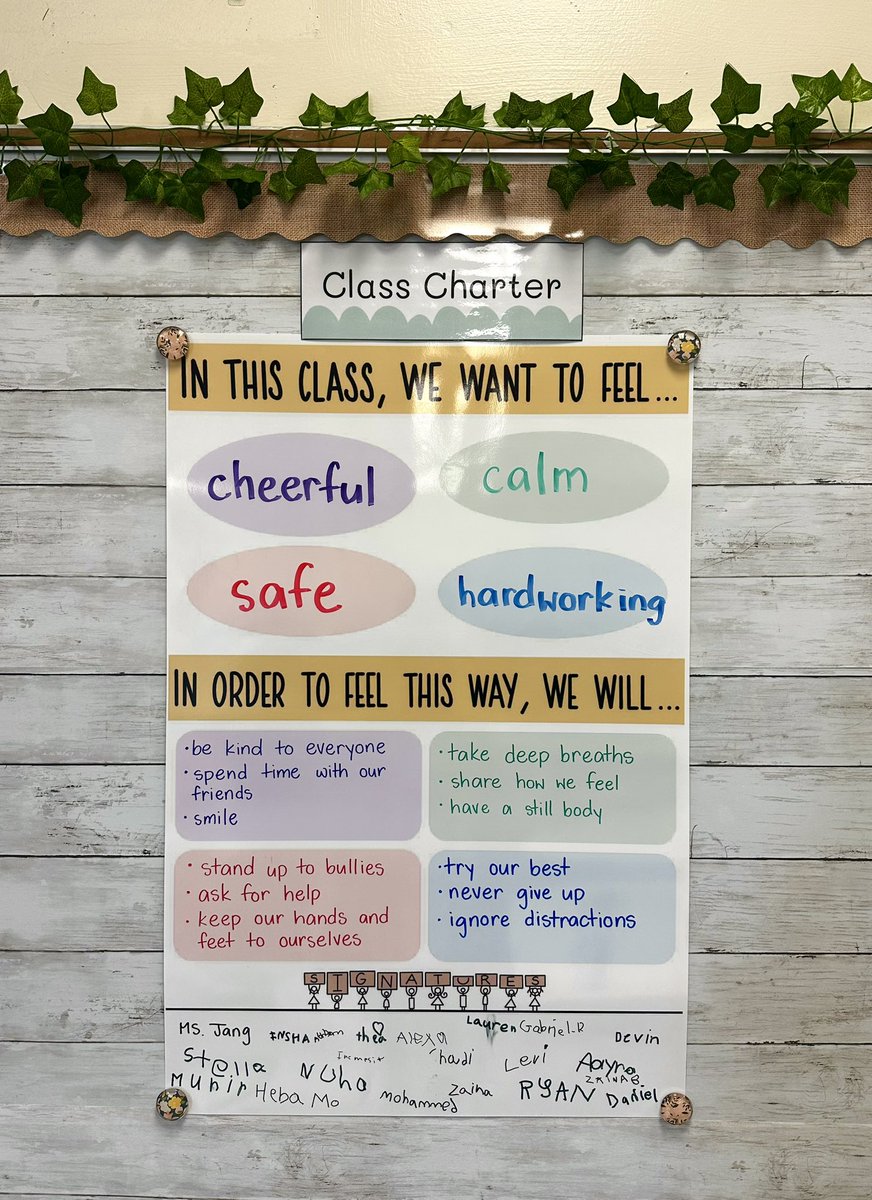 Class Charter
IN THIS CLASS, WE WANT TO FEEL...
cheerful
calm
safe
hardworking
IN ORDER TO FEEL THIS WAY, WE WILL...
• be kind to everyone
• spend time with our
friends
• smile
• take deep breaths
• share how we feel
• have a still body
• stand up to bullies
• ask for help
• keep our hands and
feet to ourselves
• try our best
• never give up
• ignore distractions
SIGNATURES
Ms. Jang INSHA thea ALEXA Lauren Gabriel-R Devin
St@lla Levi Aayra
ZAINAB
Munir Nuha Zaina RYAN Daniel
Heba Mo mohammed